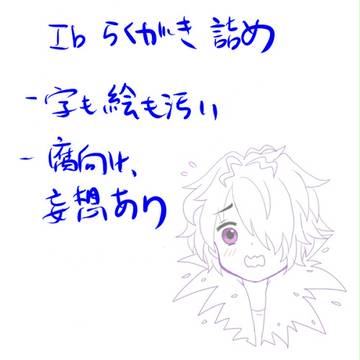 Ib らくがき 詰め
- 字も絵も汚い
- 腐向け、
妄想あり